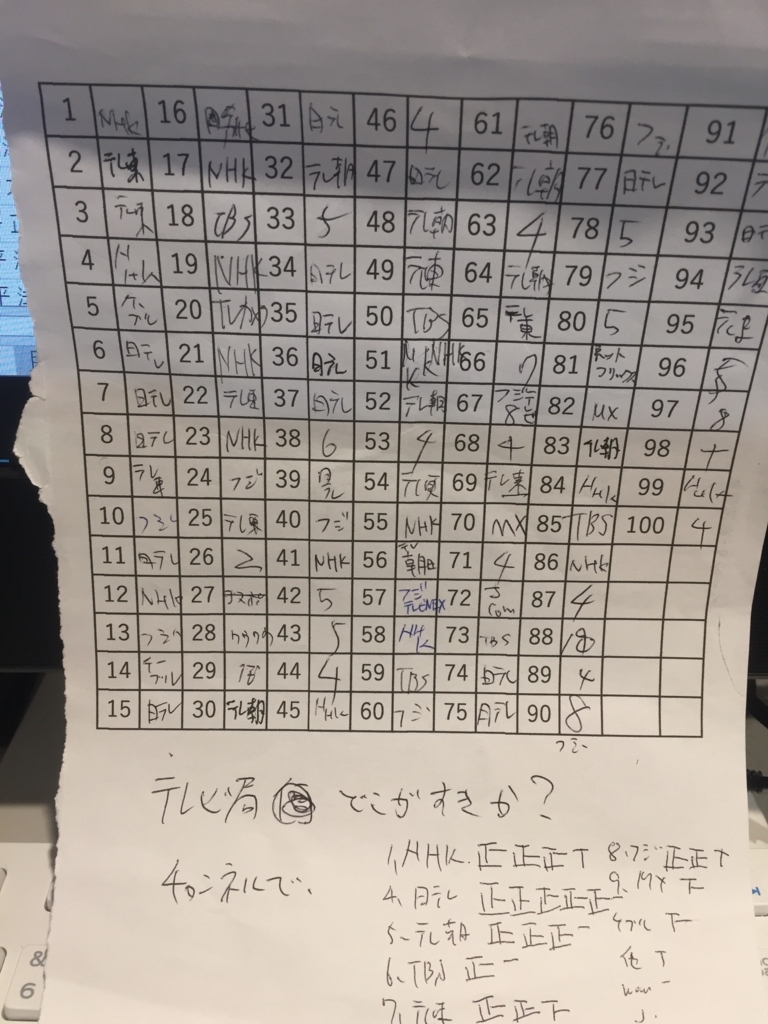 1 NHK 16 31 日テレ 46 4 61 テレ朝 76 フジ 91
2 テレ東 17 NHK 32 テレ朝 47 日テレ 62 テレ朝 77 日テレ 92 テ
3 テレ東 18 TBS 33 5 48 テレ朝 63 4 78 5 93 日テ
4 NHK 19 NHK 34 日テレ 49 テレ東 64 テレ朝 79 フジ 94 テレ
5 ケーブル 20 35 日テレ 50 TBS 65 テレ東 80 5 95 テレ
6 日テレ 21 NHK 36 日テレ 51 NHK 66 7 81 ネットフリックス 96
7 日テレ 22 テレ東 37 日テレ 52 テレ朝 67 フジテレビ 8 82 MX 97 8
8 日テレ 23 NHK 38 6 53 4 68 4 83 テレ朝 98
9 テレ東 24 フジ 39 日テレ 54 テレ東 69 テレ東 84 NHK 99 NHK
10 フジ 25 テレ東 40 フジ 55 NHK 70 MX 85 TBS 100 4
11 日テレ 26 41 NHK 56 テレ朝日 71 4 86 NHK
12 NHK 27 42 5 57 フジテレビ 72 J com 87 4
13 フジ 28 43 5 58 NHK 73 TBS 88 18
14 ケーブル 29 44 4 59 TBS 74 日テレ 89 4
15 日テレ 30 テレ朝 45 NHK 60 フジ 75 日テレ 90 8
フジ
テレビ局 どこがすきか?
チャンネルで、
1, NHK. 正正正T 8、フジ 正正T
4、日テレ 正正正正正一 9、MX 下
5、テレ朝 正正正一 ケーブル 下
6、TBS 正一 他 T
7、テレ東 正正下